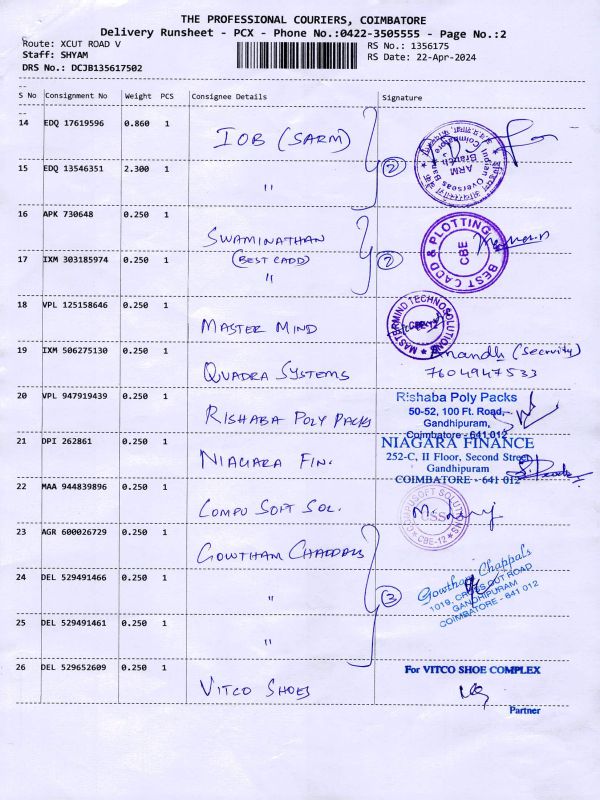 THE PROFESSIONAL COURIERS, COIMBATORE
Delivery Runsheet - PCX - Phone No.:0422-3505555 - Page No.:2
Route: XCUT ROAD V
RS No.: 1356175
Staff: SHYAM
RS Date: 22-Apr-2024
DRS No.: DCJB135617502
S No Consignment No Weight PCS Consignee Details Signature
14 EDQ 17619596 0.860 1 IOB (SARM)
15 EDQ 13546351 2.300 1 "
2
Indian Overseas Bank
ARM
Branch
Coimbatore
16 APK 730648 0.250 1 SWAMINATHAN
(BEST CADD)
17 IXM 303185974 0.250 1 "
2
BEST CADD & PLOTTING
CBE
18 VPL 125158646 0.250 1 MASTER MIND
MASTERMIND TECHNOSOLUTIONS
CBE-12
19 IXM 506275130 0.250 1 QUADRA SYSTEMS
Anandh (Security)
7604947533
20 VPL 947919439 0.250 1 RISHABA POLY PACKS
Rishaba Poly Packs
50-52, 100 Ft. Road,
Gandhipuram,
Coimbatore - 641 012
21 DPI 262861 0.250 1 NIAGARA FIN.
NIAGARA FINANCE
252-C, II Floor, Second Street
Gandhipuram
COIMBATORE - 641 012
22 MAA 944839896 0.250 1 COMPU SOFT SOL.
COMPUSOFT SOLUTIONS
CSS
CBE-12
23 AGR 600026729 0.250 1 GOWTHAM CHAPPALS
24 DEL 529491466 0.250 1 "
25 DEL 529491461 0.250 1 "
3
Gowtham Chappals
1019, CROSS CUT ROAD
GANDHIPURAM
COIMBATORE - 641 012
26 DEL 529652609 0.250 1 VITCO SHOES
For VITCO SHOE COMPLEX
Partner